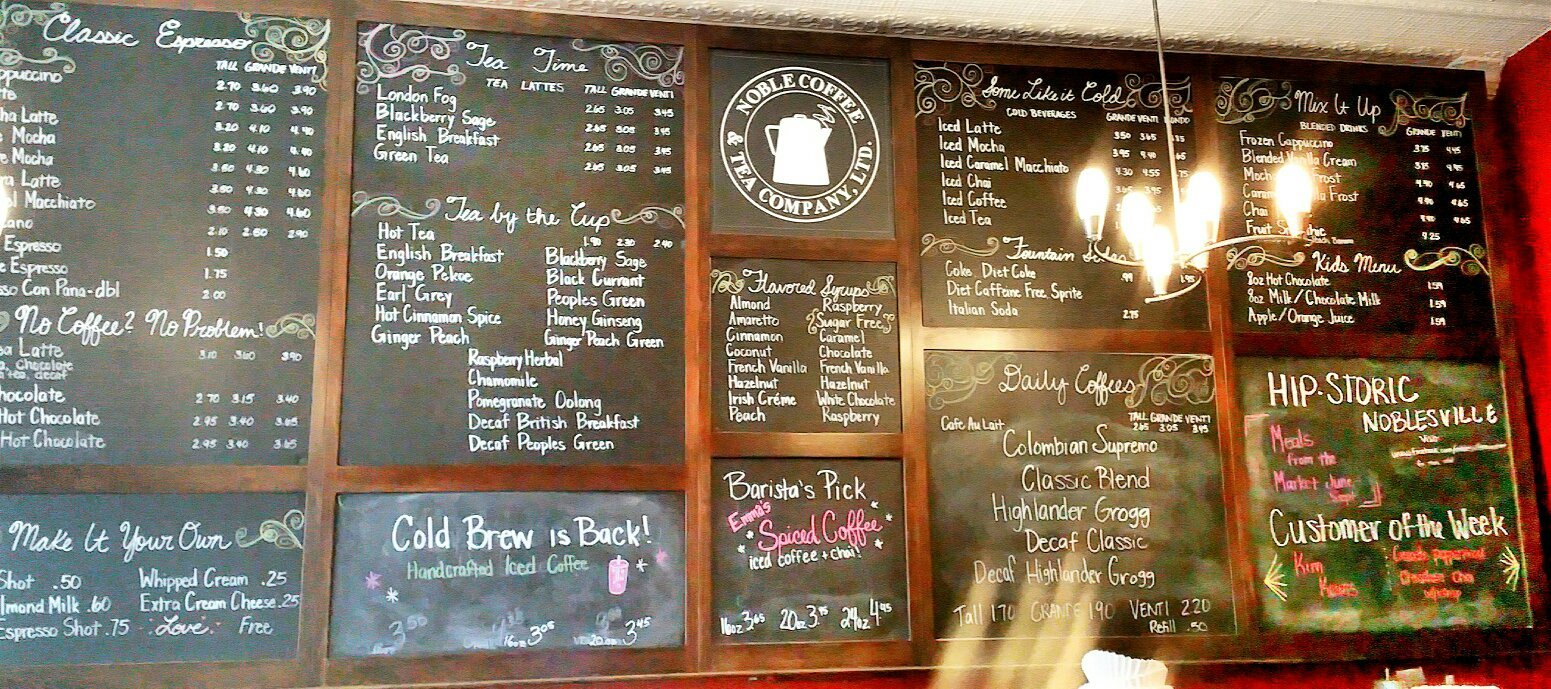 Classic Espresso
TALL GRANDE VENTI
ppuccino 2.70 3.60 3.90
tte 2.70 3.60 3.90
ha Latte 3.20 4.10 4.40
e Mocha 3.20 4.10 4.40
e Mocha 3.60 4.30 4.60
ra Latte 3.60 4.30 4.60
el Macchiato 3.60 4.30 4.60
cano 2.10 2.60 2.90
Espresso 1.50
e Espresso 1.75
sso Con Pana-dbl 2.00
No Coffee? No Problem!
sa Latte 3.10 3.60 3.90
Chocolate
tea, decaf
hocolate 2.70 3.15 3.40
Hot Chocolate 2.95 3.40 3.65
Hot Chocolate 2.95 3.40 3.65
Make It Your Own
Shot .50 Whipped Cream .25
lmond Milk .60 Extra Cream Cheese .25
Espresso Shot .75 Love Free
Tea Time
TEA LATTES TALL GRANDE VENTI
London Fog 2.65 3.05 3.45
Blackberry Sage 2.65 3.05 3.45
English Breakfast 2.65 3.05 3.45
Green Tea 2.65 3.05 3.45
Tea by the Cup
Hot Tea 1.90 2.30 2.40
English Breakfast Blackberry Sage
Orange Pekoe Black Currant
Earl Grey Peoples Green
Hot Cinnamon Spice Honey Ginseng
Ginger Peach Ginger Peach Green
Raspberry Herbal
Chamomile
Pomegranate Oolong
Decaf British Breakfast
Decaf Peoples Green
Cold Brew is Back!
Handcrafted Iced Coffee
16oz 3.05 20oz 3.45
NOBLE COFFEE
& TEA COMPANY, LTD.
Flavored Syrups
Almond Raspberry
Amaretto Sugar Free
Cinnamon Caramel
Coconut Chocolate
French Vanilla French Vanilla
Hazelnut Hazelnut
Irish Créme White Chocolate
Peach Raspberry
Barista's Pick
Emma's
Spiced Coffee
iced coffee + chai!
16oz 3.65 20oz 3.95 24oz 4.45
Some Like it Cold
COLD BEVERAGES GRANDE VENTI
Iced Latte 3.50 3.65
Iced Mocha 3.95 4.40
Iced Caramel Macchiato 4.30 4.55
Iced Chai 3.65 3.95
Iced Coffee
Iced Tea
Fountain
Coke, Diet Coke .99
Diet Caffeine Free, Sprite
Italian Soda 2.75
Daily Coffees
TALL GRANDE VENTI
Cafe Au Lait 2.65 3.05 3.45
Colombian Supremo
Classic Blend
Highlander Grogg
Decaf Classic
Decaf Highlander Grogg
Tall 1.70 GRANDE 1.90 VENTI 2.20
Refill .50
Mix It Up
BLENDED DRINKS GRANDE VENTI
Frozen Cappuccino 3.75 4.45
Blended Vanilla Cream
Mocha Frost
Frost
Chai
Fruit
Kids Menu
8oz Hot Chocolate 1.59
8oz Milk/Chocolate Milk 1.59
Apple/Orange Juice 1.59
HIP-STORIC
NOBLESVILLE
Meals
from the
Market June
Customer of the Week
Kim